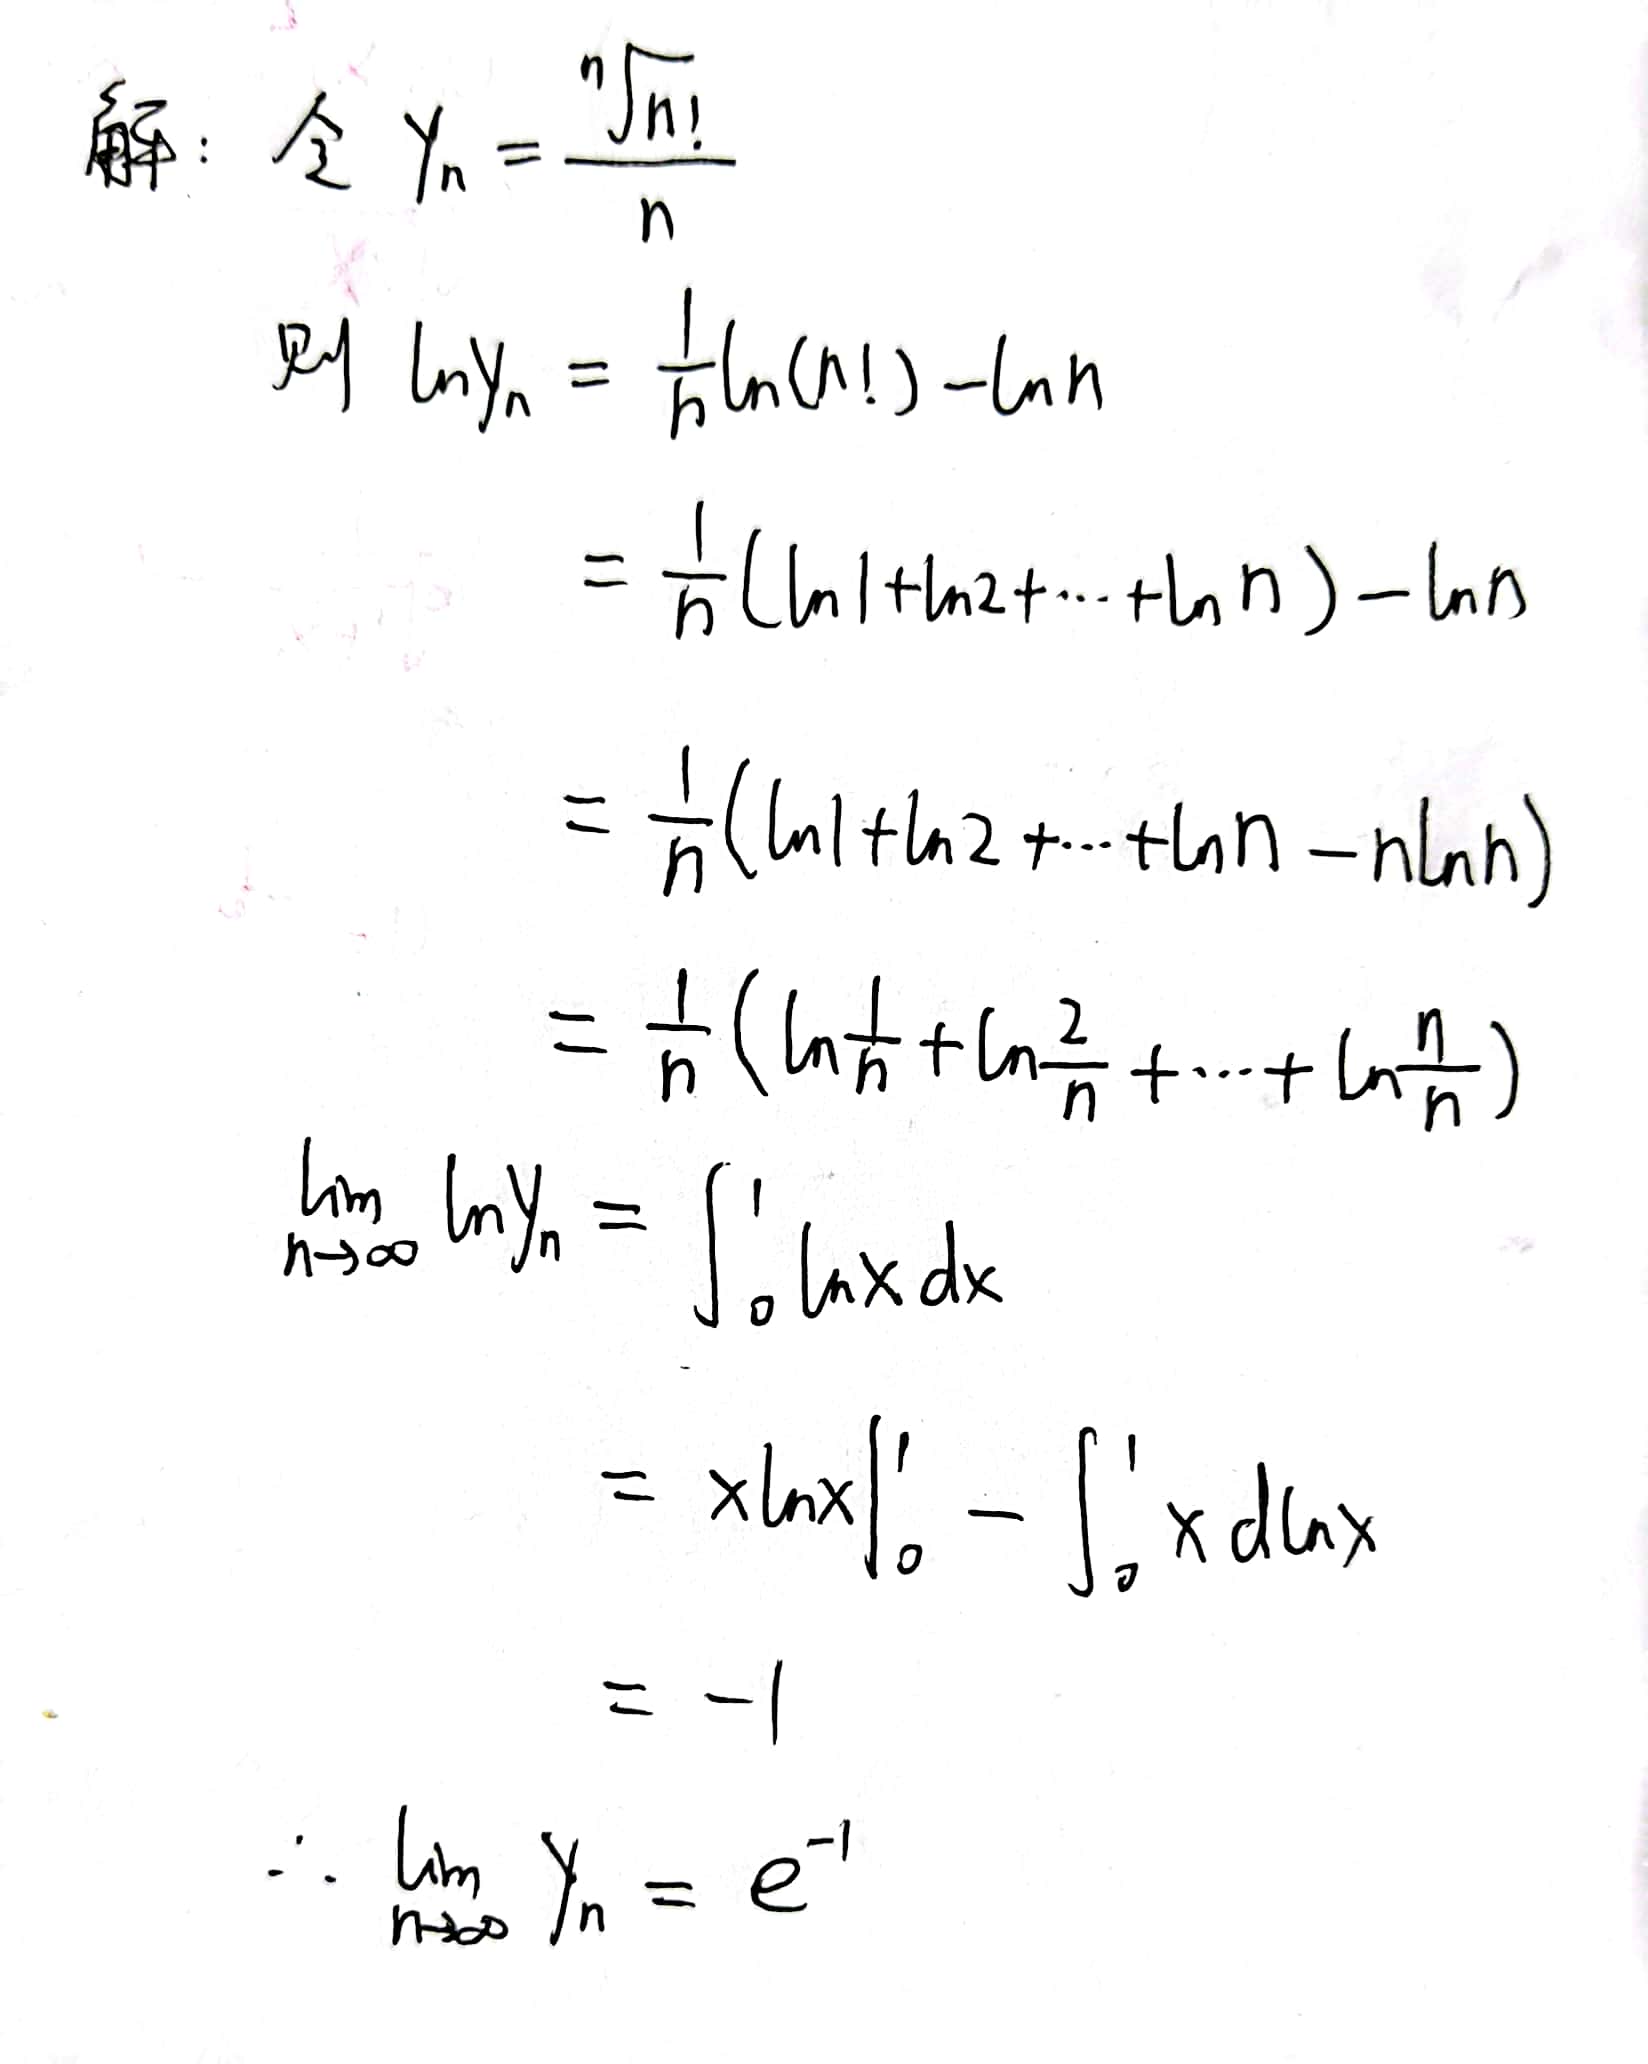 解: 令 yₙ = ⁿ√n! / n
则 lnyₙ = 1/n ln(n!) - lnn
= 1/n (ln1+ln2+…+lnn) - lnn
= 1/n (ln1+ln2+…+lnn - nlnn)
= 1/n (ln 1/n + ln 2/n + … + ln n/n)
lim n→∞ lnyₙ = ∫₀¹ lnx dx
= xlnx|₀¹ - ∫₀¹ x dlnx
= -1
∴ lim n→∞ yₙ = e⁻¹